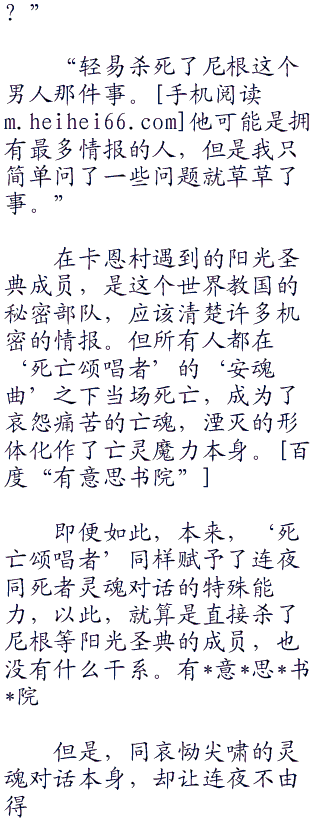 ？”
“轻易杀死了尼根这个
男人那件事。[手机阅读
m.heihei66.com]他可能是拥
有最多情报的人，但是我只
简单问了一些问题就草草了
事。”
在卡恩村遇到的阳光圣
典成员，是这个世界教国的
秘密部队，应该清楚许多机
密的情报。但所有人都在
‘死亡颂唱者’的‘安魂
曲’之下当场死亡，成为了
哀怨痛苦的亡魂，湮灭的形
体化作了亡灵魔力本身。[百
度“有意思书院”]
即便如此，本来，‘死
亡颂唱者’同样赋予了连夜
同死者灵魂对话的特殊能
力，以此，就算是直接杀了
尼根等阳光圣典的成员，也
没有什么干系。有*意*思*书
*院
但是，同哀恸尖啸的灵
魂对话本身，却让连夜不由
得